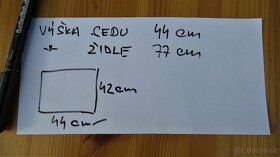 VÝŠKA SEDU 44 cm
-"- ŽIDLE 77 cm
42cm
44cm
© Bazoš.cz